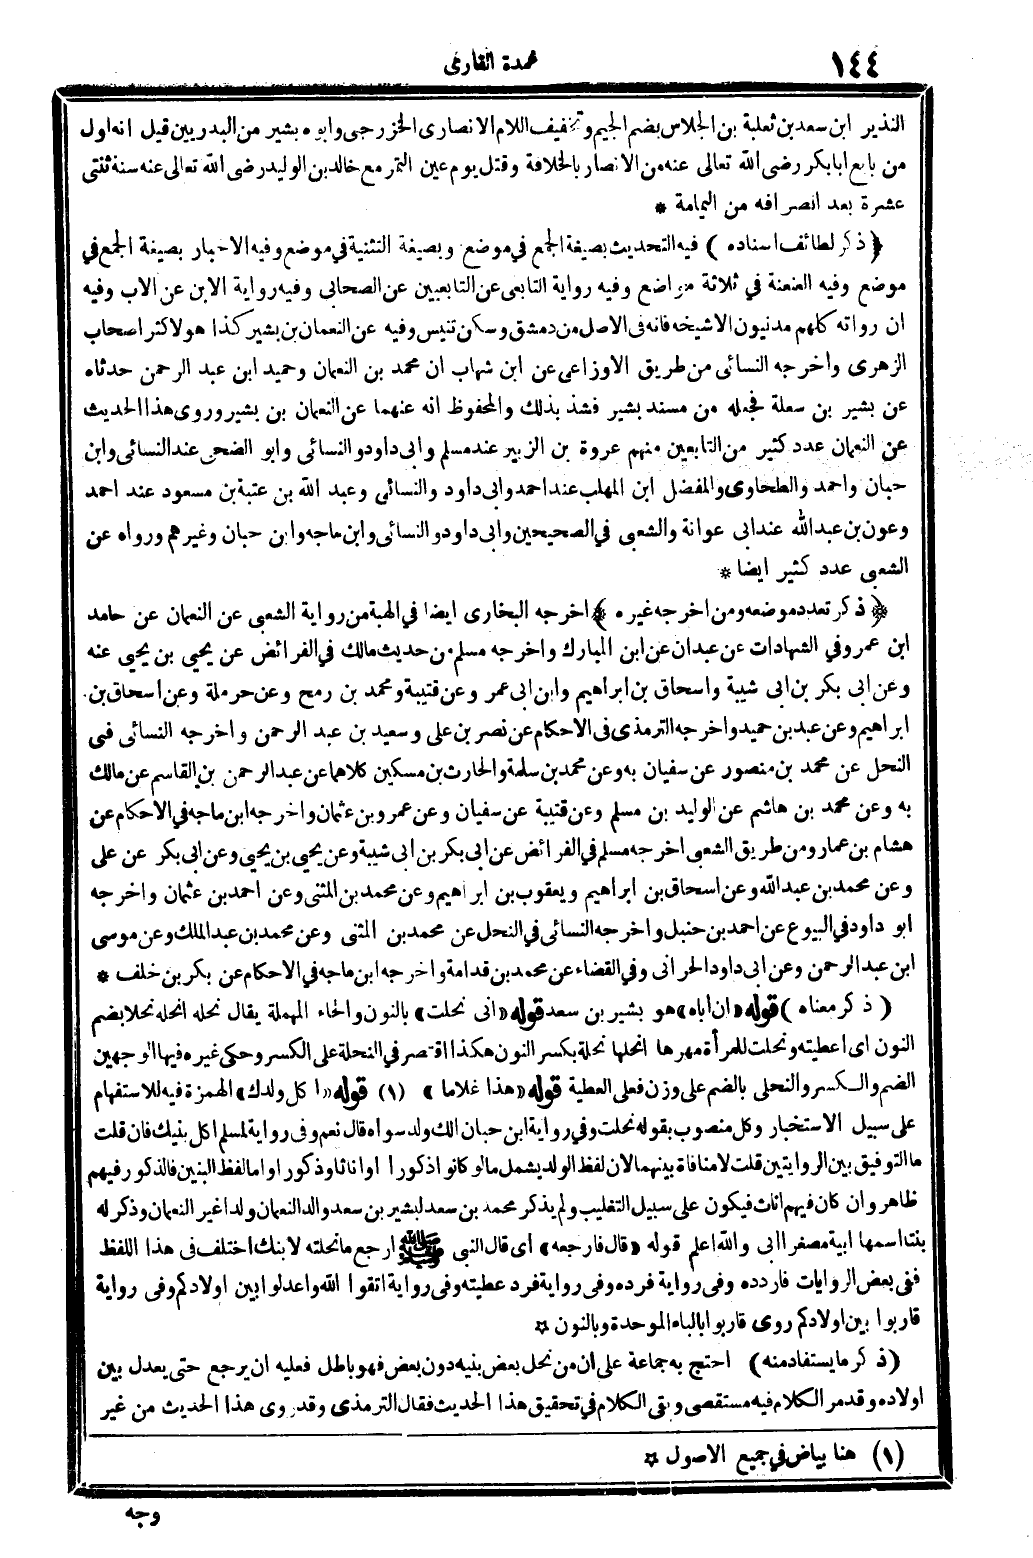 ١٤٤
عمدة القارى
النذير ابن سعد بن ثعلبة بن الجلاس بضم الجيم وتخفيف اللام الانصارى الخزرجى وابوه بشير من البدريين قيل انه اول
من بايع ابا بكر رضى الله تعالى عنه من الانصار بالخلافة وقتل يوم عين التمر مع خالد بن الوليد رضى الله تعالى عنه سنة ثنتى
عشرة بعد انصرافه من اليمامة *
﴿ ذكر لطائف اسناده ﴾ فيه التحديث بصيغة الجمع في موضع وبصيغة التثنية في موضع وفيه الاخبار بصيغة الجمع في
موضع وفيه العنعنة في ثلاثة مواضع وفيه رواية التابعى عن التابعيين عن الصحابى وفيه رواية الابن عن الاب وفيه
ان رواته كلهم مدنيون الا شيخه فانه فى الاصل من دمشق وسكن تنيس وفيه عن النعمان بن بشير كذا هو لاكثر اصحاب
الزهرى واخرجه النسائى من طريق الاوزاعى عن ابن شهاب ان محمد بن النعمان وحميد ابن عبد الرحمن حدثاه
عن بشير بن سعلة فجعله من مسند بشير فشذ بذلك والمحفوظ انه عنهما عن النعمان بن بشير وروى هذا الحديث
عن النعمان عدد كثير من التابعين منهم عروة بن الزبير عند مسلم وابى داود والنسائى وابو الضحى عند النسائى وابن
حبان واحمد والطحاوى والمفضل ابن المهلب عند احمد وابى داود والنسائى وعبد الله بن عتبة بن مسعود عند احمد
وعون بن عبد الله عند ابى عوانة والشعبى في الصحيحين وابى داود والنسائى وابن ماجه وابن حبان وغيرهم ورواه عن
الشعبى عدد كثير ايضا *
﴿ ذكر تعدد موضعه ومن اخرجه غيره ﴾ اخرجه البخارى ايضا في الهبة من رواية الشعبى عن النعمان عن حامد
ابن عمر وفي الشهادات عن عبدان عن ابن المبارك واخرجه مسلم من حديث مالك في الفرائض عن يحيى بن يحيى عنه
وعن ابى بكر بن ابى شيبة واسحاق بن ابراهيم وابن ابى عمر وعن قتيبة ومحمد بن رمح وعن حرملة وعن اسحاق بن
ابراهيم وعن عبد بن حميد واخرجه الترمذى فى الاحكام عن نصر بن على وسعيد بن عبد الرحمن واخرجه النسائى فى
النحل عن محمد بن منصور عن سفيان به وعن محمد بن سلمة والحارث بن مسكين كلاهما عن عبد الرحمن بن القاسم عن مالك
به وعن محمد بن هاشم عن الوليد بن مسلم وعن قتيبة عن سفيان وعن عمرو بن عثمان واخرجه ابن ماجه في الاحكام عن
هشام بن عمار ومن طريق الشعبى اخرجه مسلم في الفرائض عن ابى بكر بن ابى شيبة وعن يحيى بن يحيى وعن ابى بكر عن على
وعن محمد بن عبد الله وعن اسحاق بن ابراهيم ويعقوب بن ابراهيم وعن محمد بن المثنى وعن احمد بن عثمان واخرجه
ابو داود في البيوع عن احمد بن حنبل واخرجه النسائى في النحل عن محمد بن المثنى وعن محمد بن عبد الملك وعن موسى
ابن عبد الرحمن وعن ابى داود الحرانى وفي القضاء عن محمد بن قدامة واخرجه ابن ماجه في الاحكام عن بكر بن خلف *
﴿ ذكر معناه ﴾ قوله «ان اباه» هو بشير بن سعد قوله «انى نحلت» بالنون والحاء المهملة يقال نحله انحله نحلا بضم
النون اى اعطيته ونحلت للمرأة مهرها انحلها نحلة بكسر النون هكذا اقتصر في النحلة على الكسر وحكى غيره فيها الوجهين
الضم والكسر والنحلى بالضم على وزن فعلى العطية قوله «هذا غلاما» (١) قوله «اكل ولدك» الهمزة فيه للاستفهام
على سبيل الاستخبار وكل منصوب بقوله نحلت وفي رواية ابن حبان الك ولد سواه قال نعم وفى رواية لمسلم اكل بنيك فان قلت
ما التوفيق بين الروايتين قلت لا منافاة بينهما لان لفظ الولد يشمل ما لو كانوا ذكورا او اناثا وذكورا واما لفظ البنين فالذكور فيهم
ظاهر وان كان فيهم اناث فيكون على سبيل التغليب ولم يذكر محمد بن سعد لبشير بن سعد والد النعمان ولدا غير النعمان وذكر له
بنتا اسمها ابية مصغر ابى والله اعلم قوله «قال فارجعه» اى قال النبى ﷺ ارجع ما نحلته لابنك اختلف فى هذا اللفظ
ففى بعض الروايات فاردده وفى رواية فرده وفى رواية فرد عطيته وفى رواية اتقوا الله واعدلوا بين اولادكم وفى رواية
قاربوا بين اولادكم روى قاربوا بالباء الموحدة وبالنون *
﴿ذكر ما يستفاد منه﴾ احتج به جماعة على ان من نحل بعض بنيه دون بعض فهو باطل فعليه ان يرجع حتى يعدل بين
اولاده وقد مر الكلام فيه مستقصى وبقى الكلام في تحقيق هذا الحديث فقال الترمذى وقد روى هذا الحديث من غير
(١) هنا بياض في جميع الاصول *
وجه